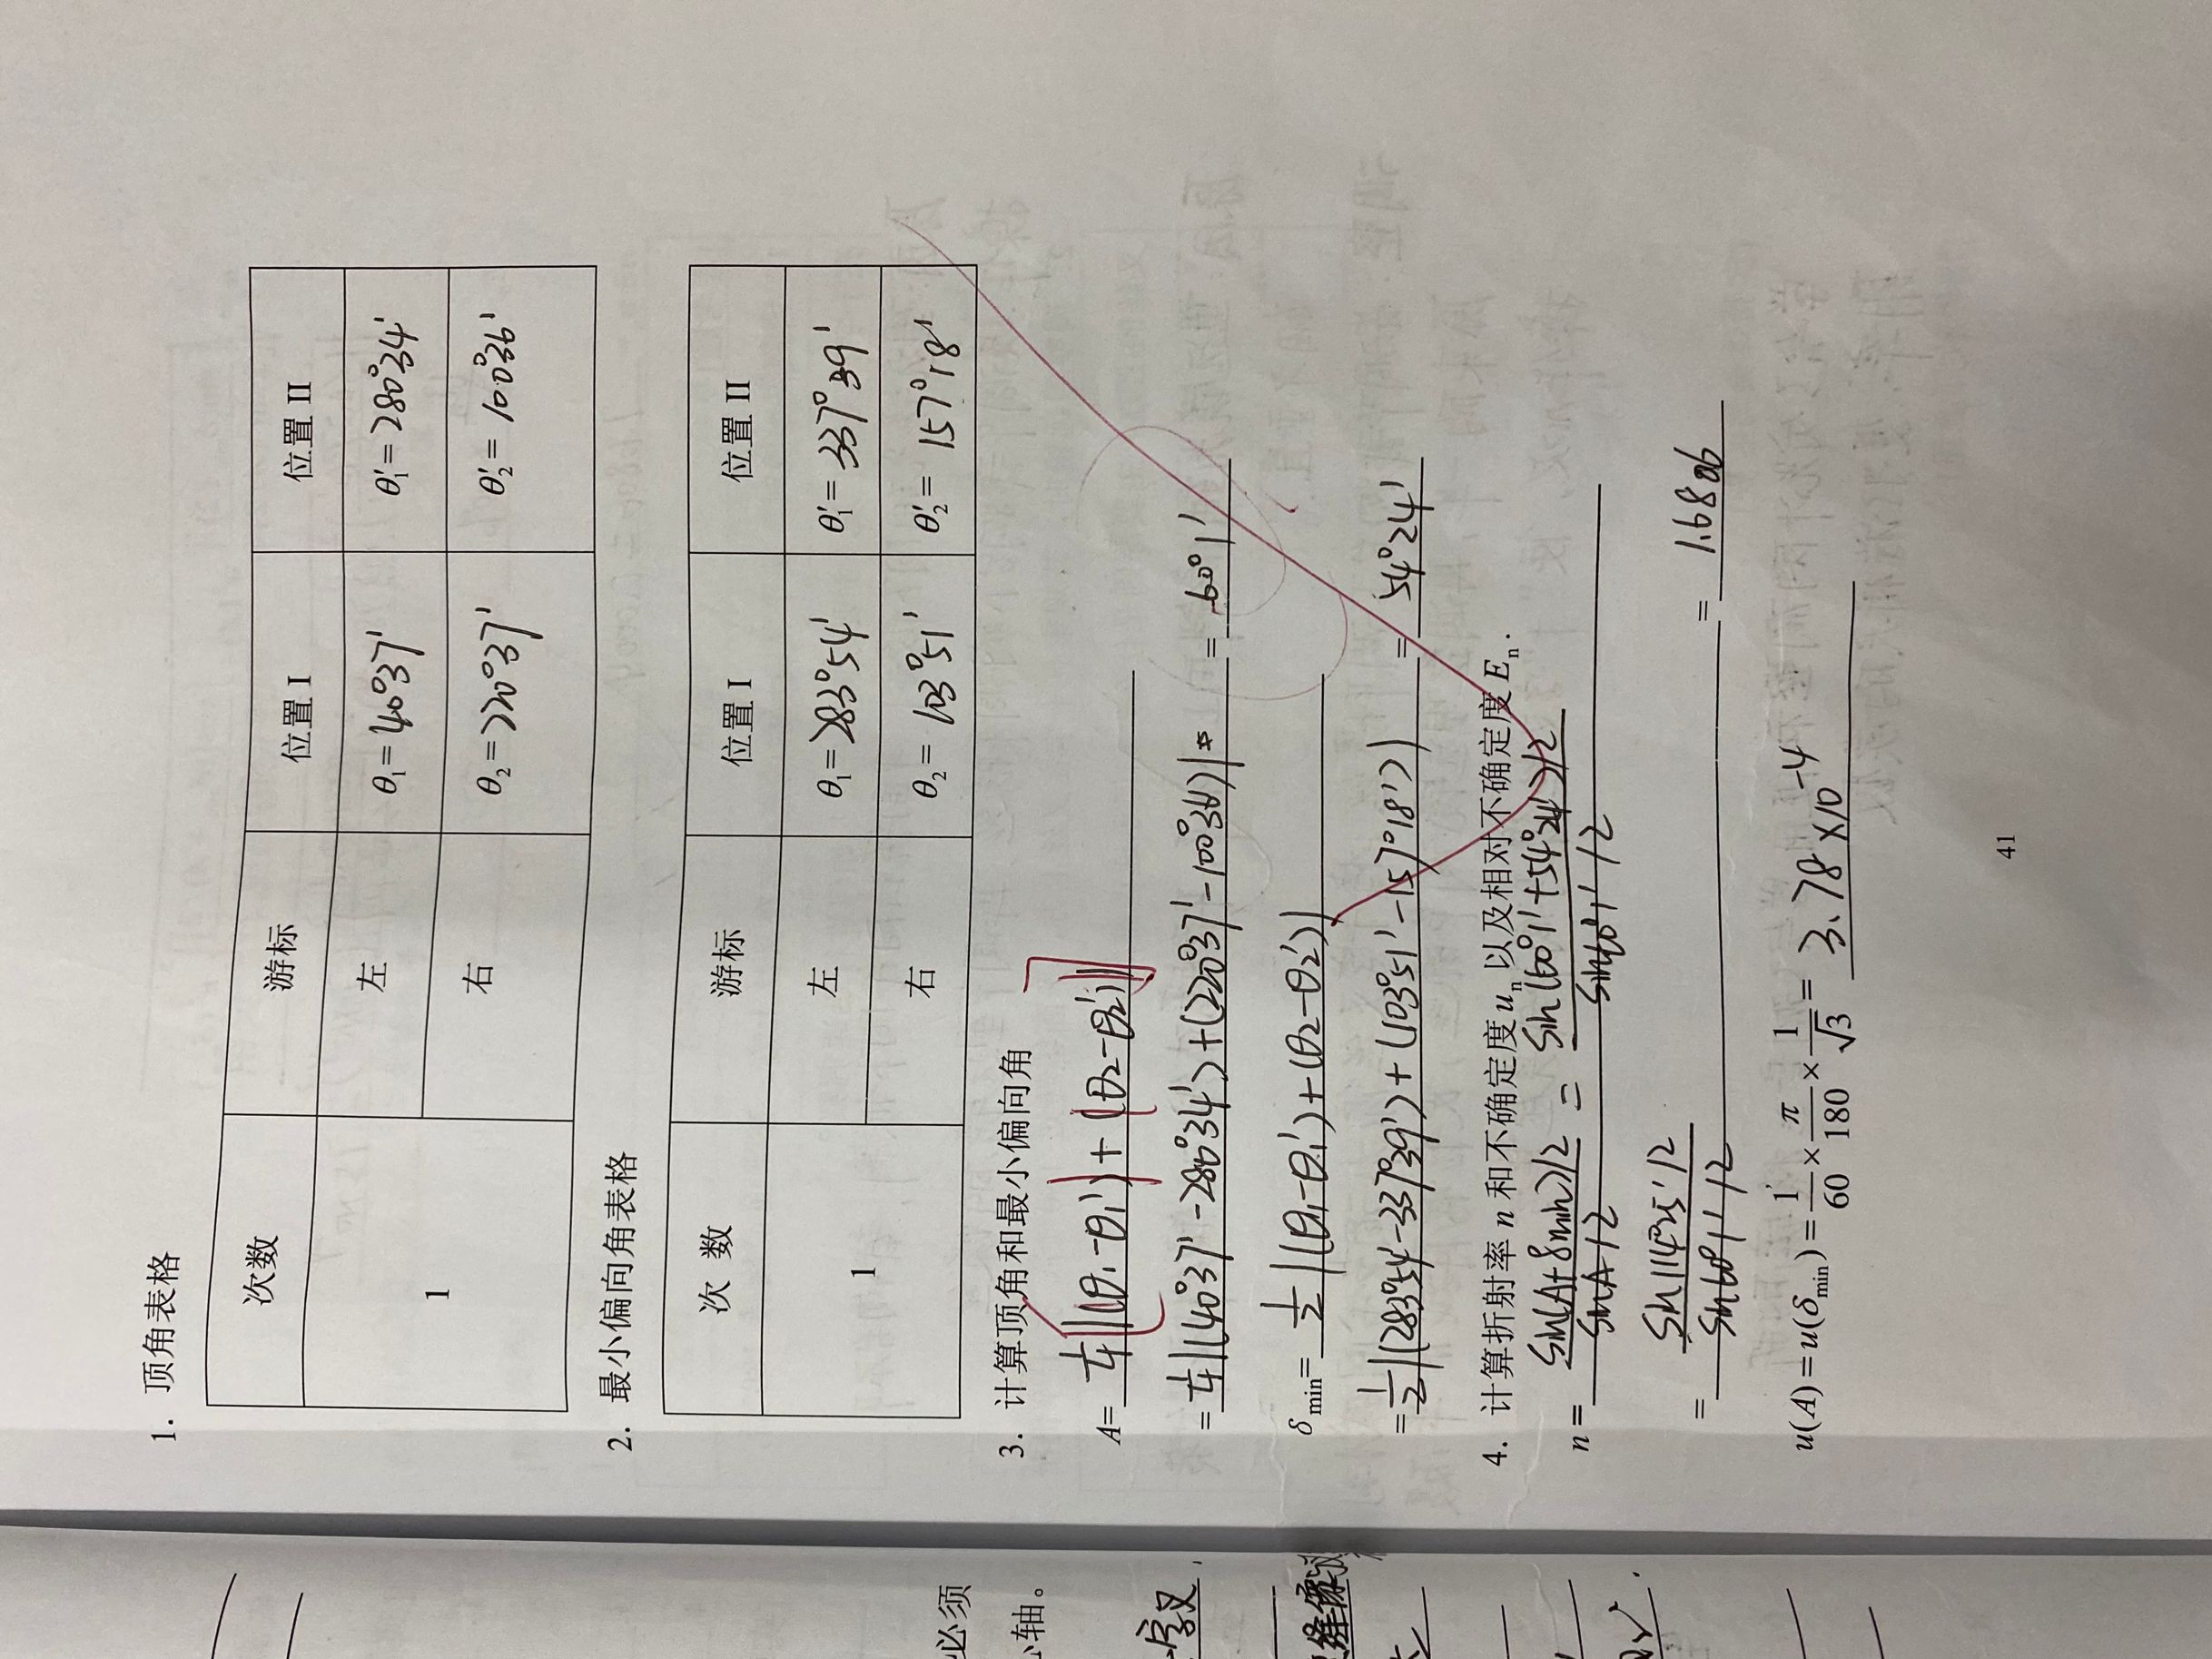 1. 顶角表格
次数 游标 位置 I 位置 II
1 左 θ₁=40°37′ θ₁′=280°34′
右 θ₂=220°37′ θ₂′=100°36′
2. 最小偏向角表格
次 数 游标 位置 I 位置 II
1 左 θ₁=283°54′ θ₁′=337°39′
右 θ₂=103°51′ θ₂′=157°18′
必须
心轴。
3. 计算顶角和最小偏向角
A= 1/4|(θ₁-θ₁′)+(θ₂-θ₂′)|
= 1/4|(40°37′-280°34′)+(220°37′-100°36′)| = 60°1′
δmin= 1/2|(θ₁-θ₁′)+(θ₂-θ₂′)|
= 1/2|(283°54′-337°39′)+(103°51′-157°18′)| = 54°24′
4. 计算折射率 n 和不确定度 uₙ 以及相对不确定度 Eₙ.
n = sin(A+δmin)/2 / sinA/2 = sin(60°1′+54°24′)/2 / sin60°1′/2
= sin114°25′/2 / sin60°1′/2 = 1.6806
u(A)=u(δmin)=1′/60×π/180×1/√3= 3.78×10⁻⁴
41